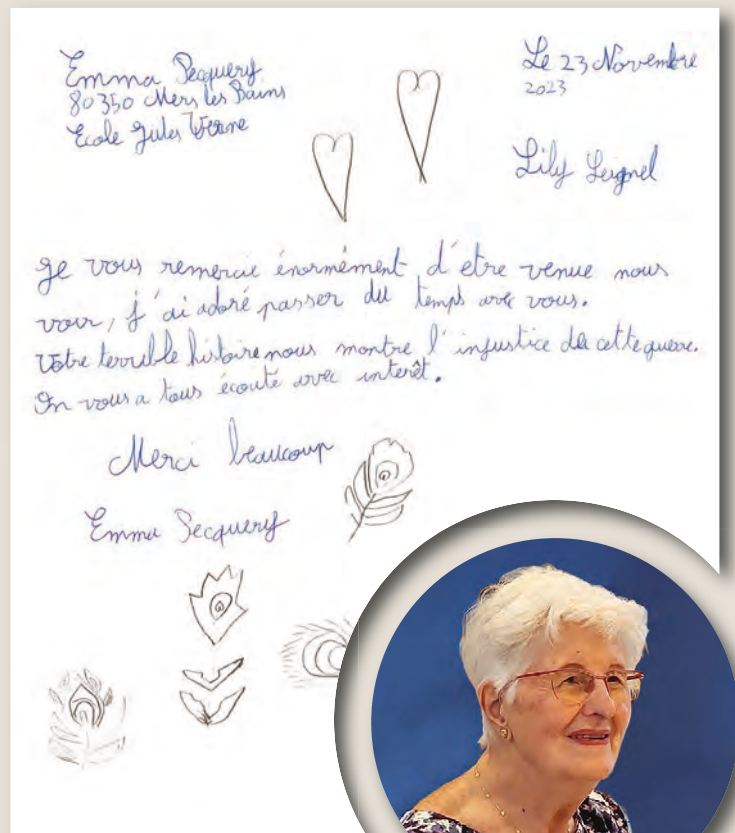 Emma Pecquery
80350 Mers les Bains
Ecole Jules Verne
Le 23 Novembre
2023
Lily Leignel
Je vous remercie énormément d'etre venue nous
voir, j'ai adoré passer du temps avec vous.
Votre terrible histoire nous montre l'injustice de cette guerre.
On vous a tous écouté avec interêt.
Merci beaucoup
Emma Pecquery